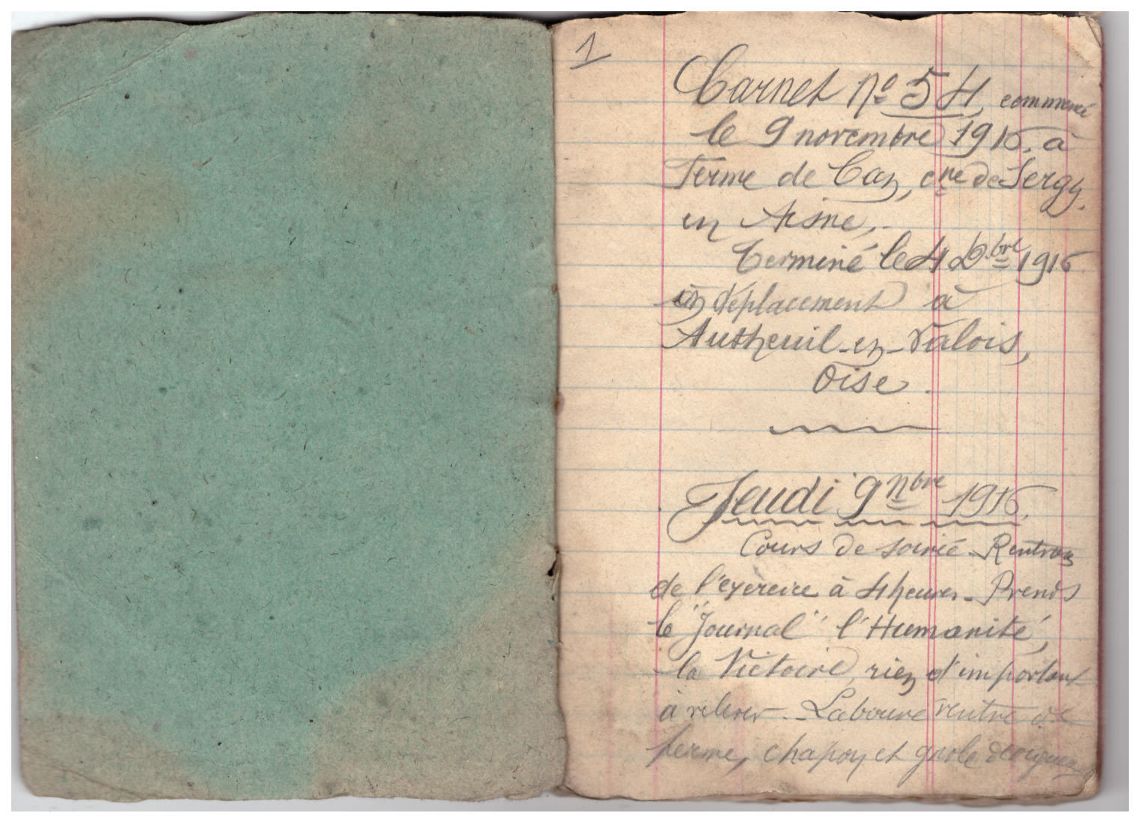 1
Carnet No 54, commencé
le 9 novembre 1916, à
Ferme de Caz, cne de Sergy,
en Aisne,
Terminé le 4 Xbre 1916
en déplacement à
Autheuil-en-Valois,
Oise.
Jeudi 9 nbre 1916.
Cours de soirée. Rentrons
de l'exercice à 4 heures. Prends
le "Journal" l'Humanité,
la Victoire, rien d'important
à relever. Laboure rentre de
ferme, chapoy et